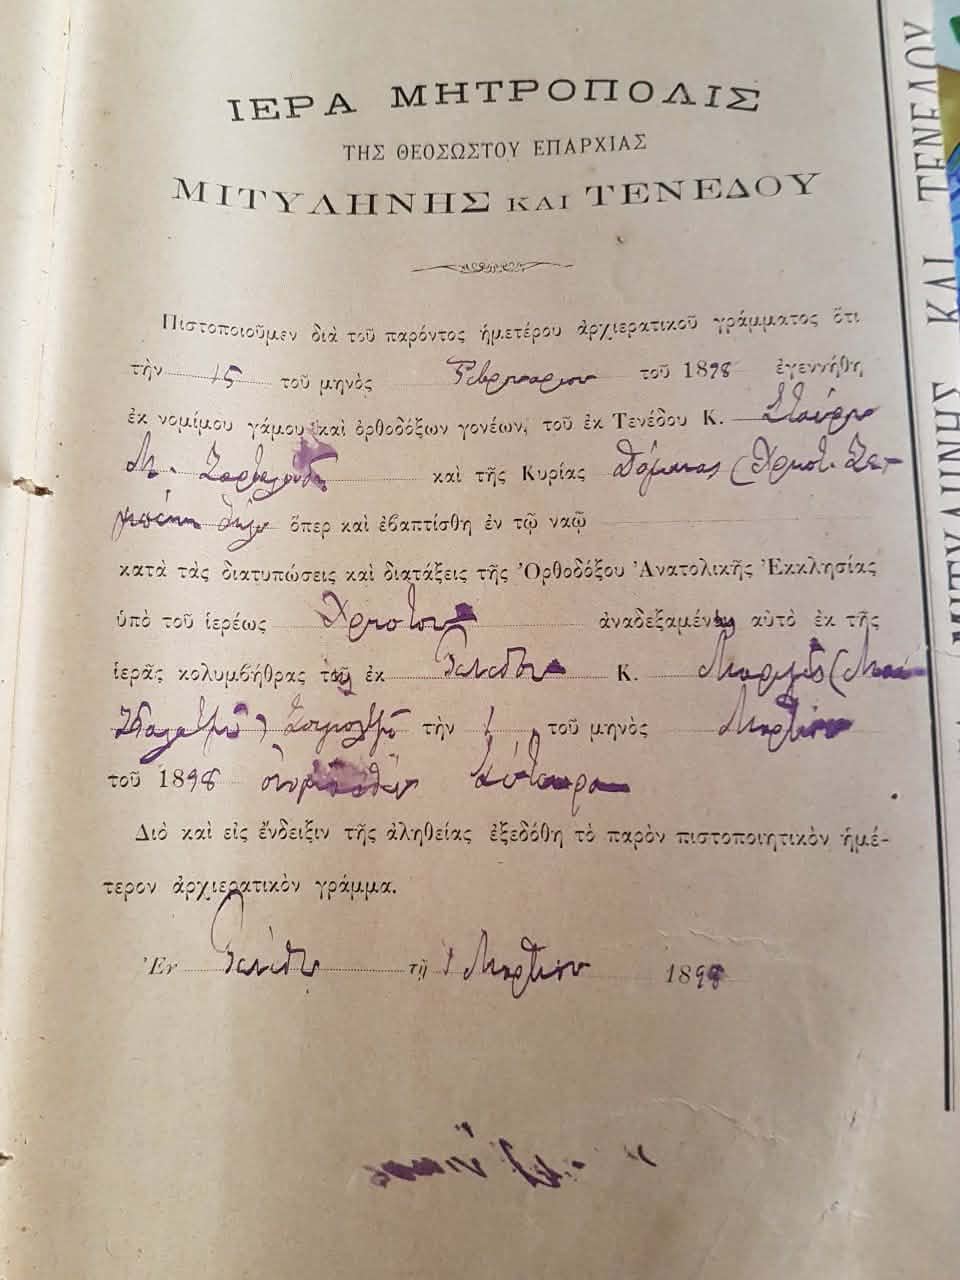 ΙΕΡΑ ΜΗΤΡΟΠΟΛΙΣ
ΤΗΣ ΘΕΟΣΩΣΤΟΥ ΕΠΑΡΧΙΑΣ
ΜΙΤΥΛΗΝΗΣ ΚΑΙ ΤΕΝΕΔΟΥ
Πιστοποιοῦμεν διὰ τοῦ παρόντος ἡμετέρου ἀρχιερατικοῦ γράμματος ὅτι
τὴν 15 τοῦ μηνὸς Φεβρουαρίου τοῦ 1898 ἐγεννήθη
ἐκ νομίμου γάμου καὶ ὀρθοδόξων γονέων, τοῦ ἐκ Τενέδου Κ. Σταύρου
Μ. καὶ τῆς Κυρίας Δόμνας (Χρηστ.
θῆλυ ὅπερ καὶ ἐβαπτίσθη ἐν τῷ ναῷ
κατὰ τὰς διατυπώσεις καὶ διατάξεις τῆς Ὀρθοδόξου Ἀνατολικῆς Ἐκκλησίας
ὑπὸ τοῦ ἱερέως Χρήστου ἀναδεξαμένης αὐτὸ ἐκ τῆς
ἱερᾶς κολυμβήθρας τῆς ἐκ Τενέδου Κ.
τὴν 1 τοῦ μηνὸς Μαρτίου
τοῦ 1898
Διὸ καὶ εἰς ἔνδειξιν τῆς ἀληθείας ἐξεδόθη τὸ παρὸν πιστοποιητικὸν ἡμέ-
τερον ἀρχιερατικὸν γράμμα.
Ἐν Τενέδῳ τῇ 1 Μαρτίου 1898
ΜΙΤΥΛΗΝΗΣ ΚΑΙ ΤΕΝΕΔΟΥ